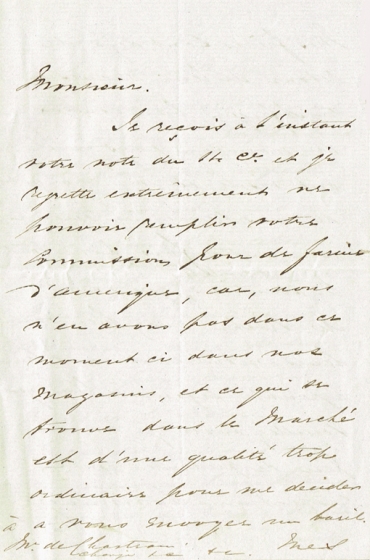 Monsieur.
Je reçois à l'instant
votre note du 11 ct. et je
regrette entrêmement ne
pouvoir remplir votre
Commission pour de farine
d'amerique, car, nous
n'en avons pas dans ce
moment ci dans nos
Magasins, et ce qui se
trouve dans le Marché
est d'une qualité trop
ordinaire pour me decider
à a vous envoyer un baril.
Mr. de Chasteau &c. Mes